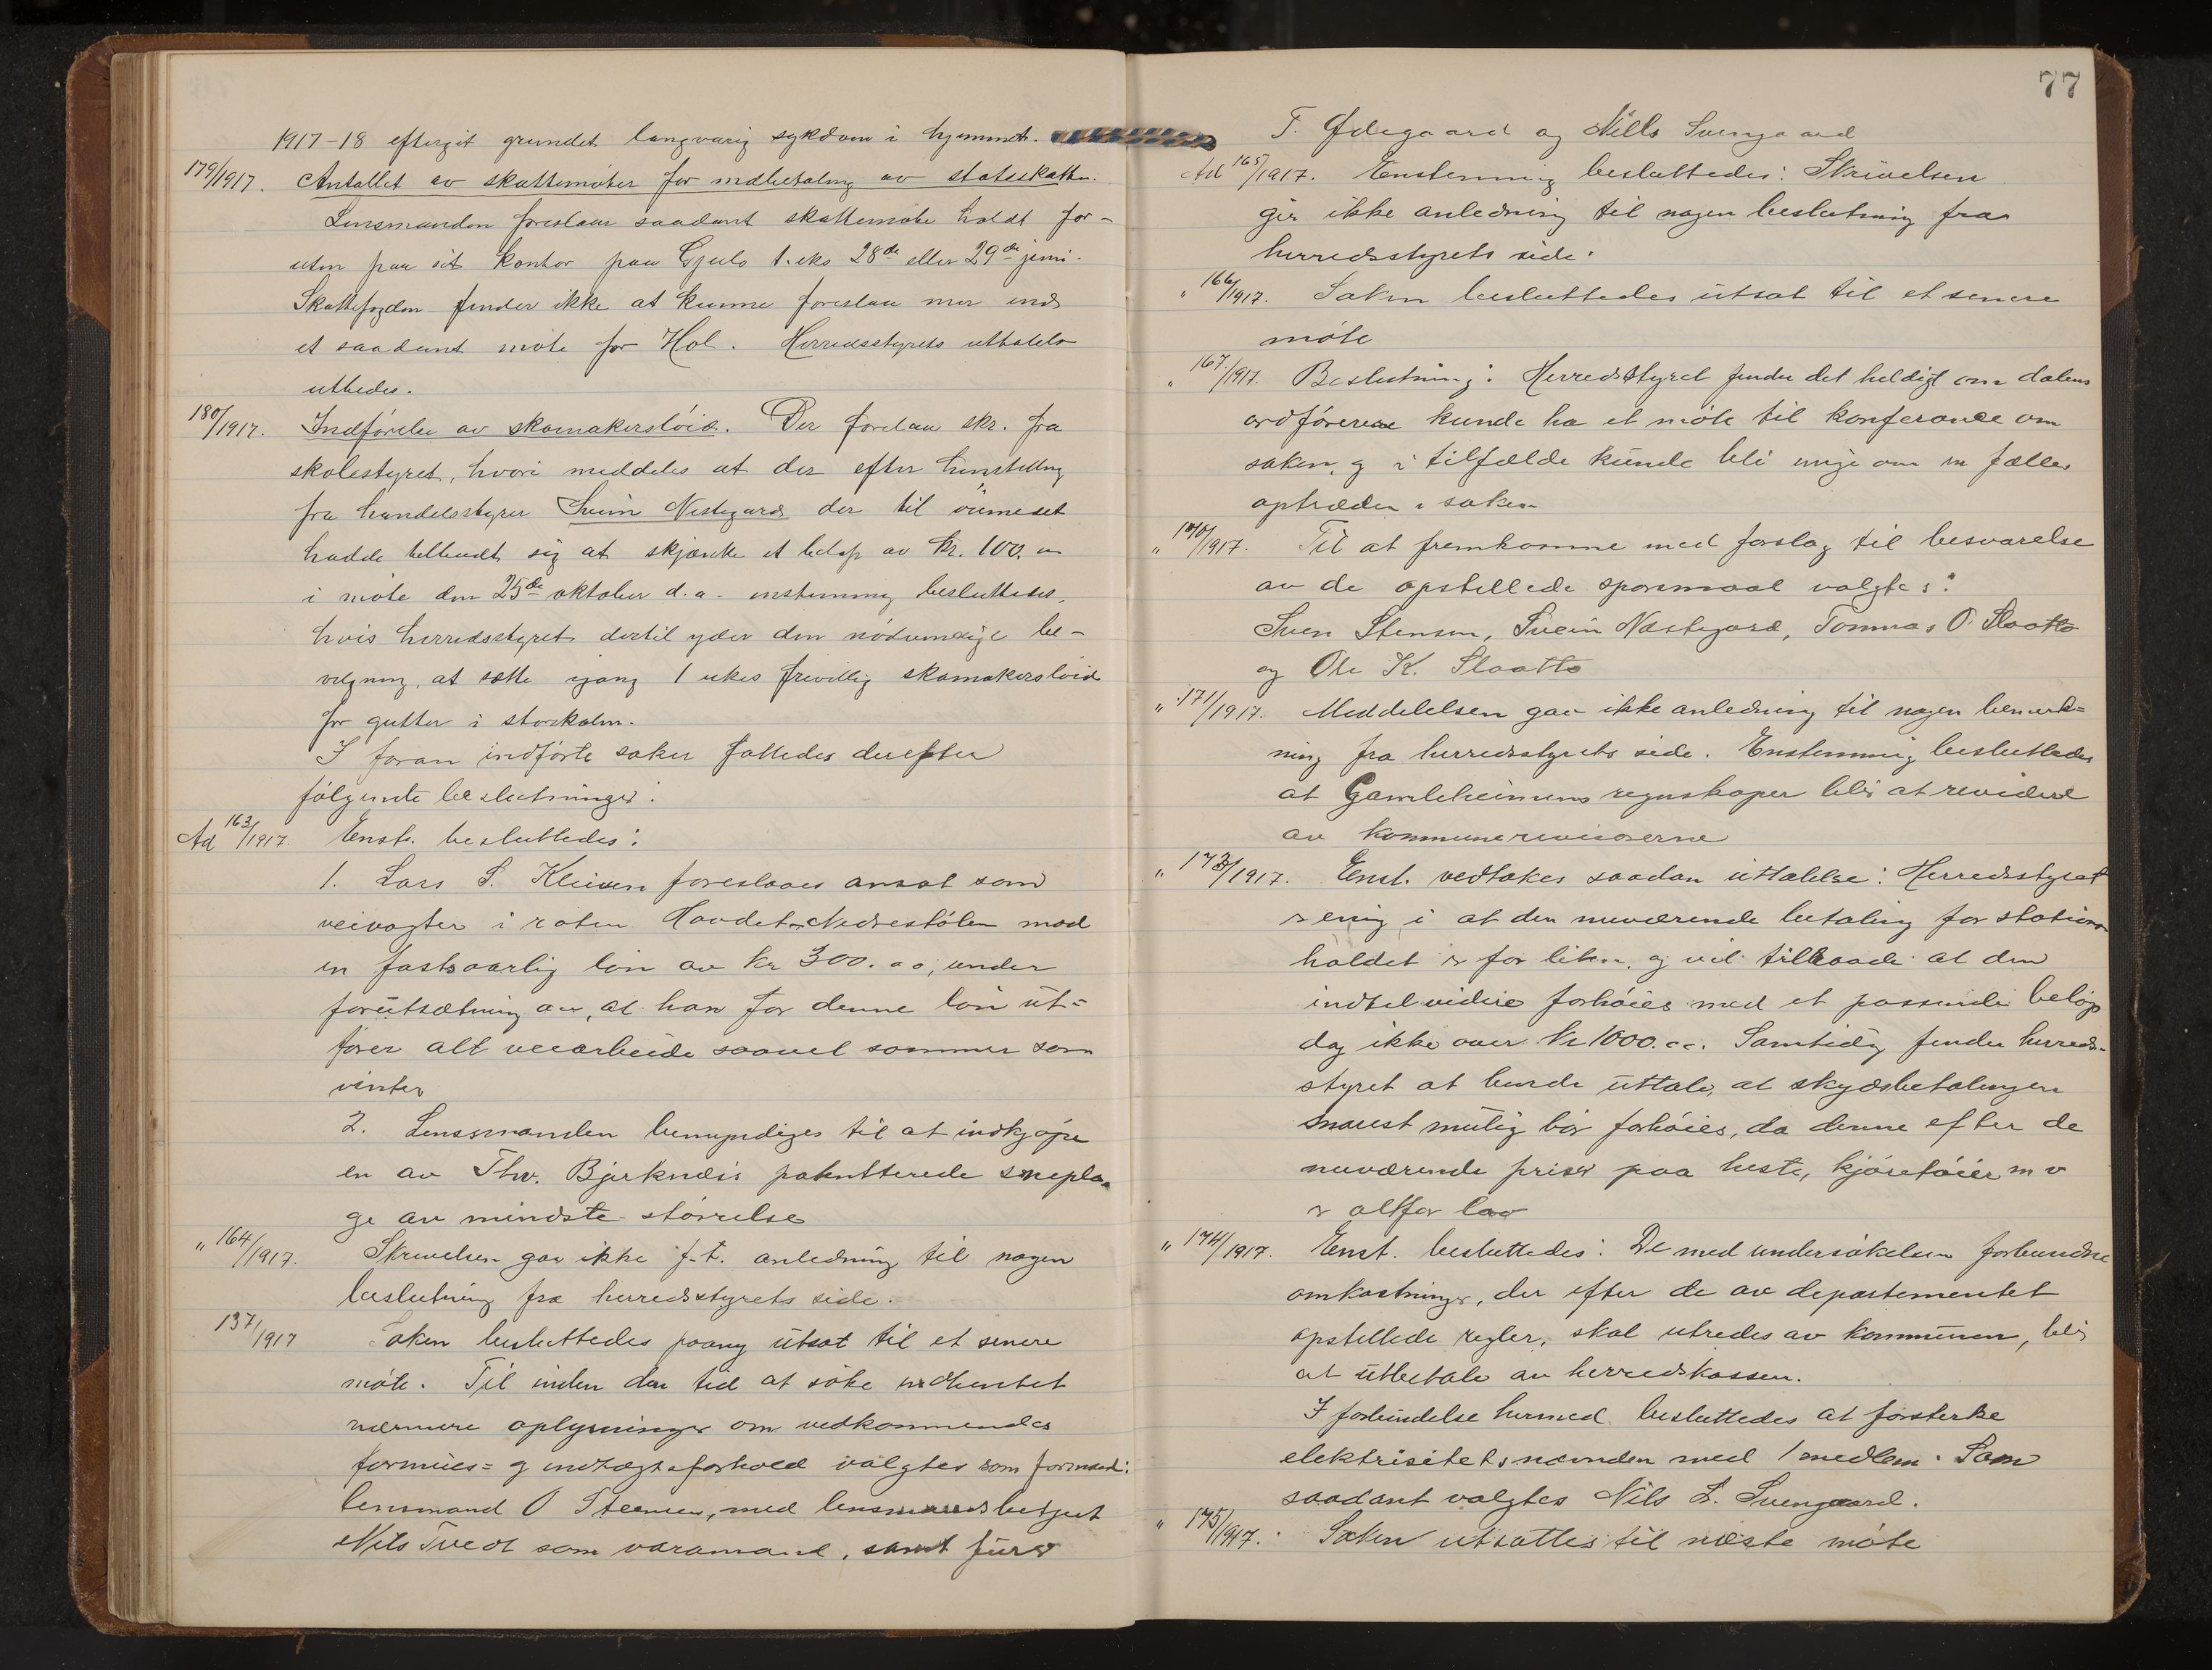 1917-18 eftergit grundet langvarig sykdom i hjemmet.
179/1917. Antallet av skattemøter for indbetaling av statsskatten.
Lensmanden foreslaar saadant skattemøte holdt for-
uten paa sit kontor paa Gjeilo t.eks 28de eller 29de juni.
Skattefogden finder ikke at kunne foreslaa mer end
et saadant møte for Hol. Herredsstyrets uttalelse
utbedes.
180/1917. Indførelse av skomakersløid. Der forelaa skr. fra
skolestyret, hvori meddeles at der efter henstilling
fra handelsstyrer Svein Nestegard der til øiemedet
hadde tilbudt sig at skjænke et beløp av kr. 100.
i møte den 25de oktober d.a. enstemmig besluttedes,
hvis herredsstyret dertil yder den nødvendige be-
vilgning, at sætte igang 1 ukes frivillig skomakersløid
for gutter i storskolen.
I foran indførte saker fattedes derefter
følgende beslutninger:
Ad 163/1917. Enst. besluttedes:
1. Lars S. Kleiven foreslaaes ansat som
veivogter i roten Hovdet-Nedrestølen mod
en fastsaarlig løn av kr 300.00, under
forutsætning av, at han for denne løn ut=
fører alt veiarbeide saavel sommer som
vinter
2. Lensmanden bemyndiges til at indkjøpe
en av Thv. Bjerknæs patentterede snepla-
ge av mindste størrelse
" 164/1917. Skrivelsen gav ikke f.t. anledning til nogen
beslutning fra herredsstyrets side.
137/1917 Saken besluttedes paany utsat til et senere
møte. Til inden den tid at søke indhentet
nærmere oplysninger om vedkommendes
formues= og indtægtsforhold valgtes som formand:
lensmand O Steensen, med lensmandsbetjent
Nils Tvedt som varamand, samt
77
T. Ødegaard og Nills Svengaard
Ad 165/1917. Enstemmig besluttedes: Skrivelsen
gir ikke anledning til nogen beslutning fra
herredsstyrets side.
" 166/1917. Saken besluttedes utsat til et senere
møte
" 167/1917. Beslutning: Herredsstyret finder det heldigt om dalens
ordførerene kunde ha et møte til konferance om
saken, og i tilfælde kunde bli enige om en fælles
optræden i saken
" 170/1917. Til at fremkomme med forslag til besvarelse
av de opstillede spørsmaal valgtes:
Sven Stensen, Svein Næstegard, Tommas O. Slaatto
og Ole K. Slaatto
" 171/1917. Meddelelsen gav ikke anledning til nogen bemerk=
ning fra herredsstyrets side. Enstemmig besluttedes
at Gamleheimens regnskaper blir at revidere
av kommunerevisorerne
" 173/1917. Enst. vedtokes saadan uttalelse: Herredsstyret
er enig i at den nuværende betaling for stations-
holdet er for liten, og vil tilraade at den
indtilvidere forhøies med et passende beløp
dog ikke over kr 1000.00. Samtidig finder herreds-
styret at burde uttale, at skydsbetalingen
snarest mulig bør forhøies, da denne efter de
nuværende priser paa heste, kjøretøier m v
er altfor lav
" 174/1917. Enst. besluttedes: De med undersøkelsen forbundne
omkostninger, der efter de av departementet
opstillede regler, skal utredes av kommunen, blir
at utbetale av herredskassen.
I forbindelse hermed besluttedes at forsterke
elektrisitetsnævnden med 1 medlem. Som
saadant valgtes Nils L. Svengaard.
" 175/1917. Saken utsattes til næste møte